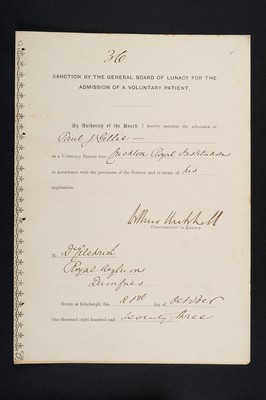 36
SANCTION BY THE GENERAL BOARD OF LUNACY FOR THE
ADMISSION OF A VOLUNTARY PATIENT.
By Authority of the Board, I hereby sanction the admission of
Paul J Gillie —
as a Voluntary Patient into Crichton Royal Institution
in accordance with the provisions of the Statute, and in terms of his
application.
Arthur Mitchell
Commissioner in Lunacy.
To Dr Gilchrist
Royal Asylum
Dumfries
Given at Edinburgh, this day of October
One thousand eight hundred and seventy-three